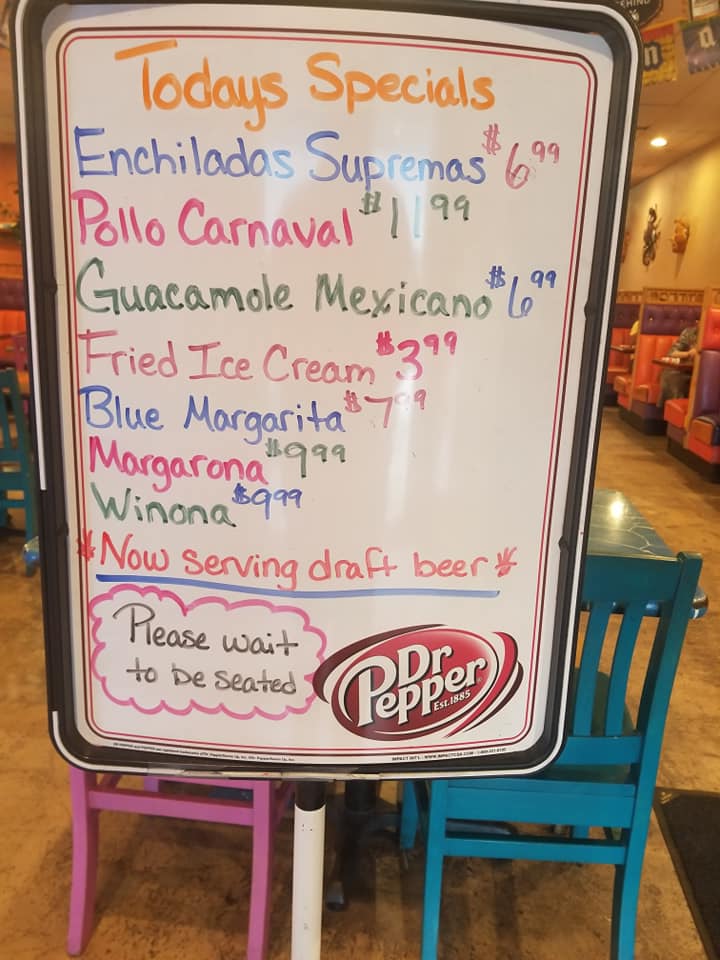 Todays Specials
Enchiladas Supremas $6.99
Pollo Carnaval $11.99
Guacamole Mexicano $6.99
Fried Ice Cream $3.99
Blue Margarita $7.99
Margarona $9.99
Winona $9.99
*Now serving draft beer*
Please wait
to be seated
Dr
Pepper
Est.1885